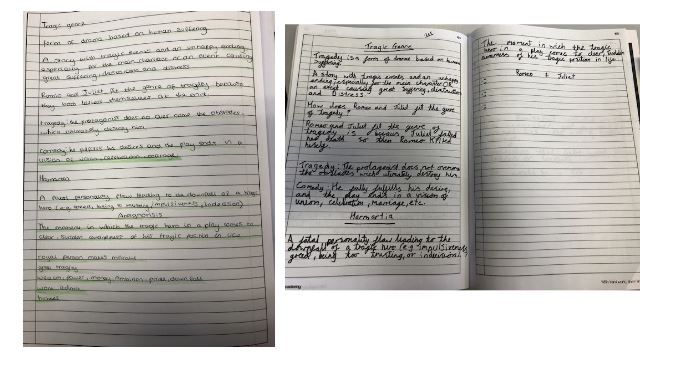 Tragic genre
form of drama based on human suffering
A story with tragic events and an unhappy ending
especially for the main character or an event causing
great suffering, destruction and distress
Romeo and Juliet fit the genre of tragedy because
they both killed themselves at the end
tragedy, the protagonist does not over come the obstacles
which ultimately destroy him
comedy, he fulfills his desires and the play ends in a
vision of union, celebration, marriage
Hamartia
A fatal personality flaw leading to the downfall of a tragic
hero (e.g. greed, being to trusting, impulsiveness, indecision)
Anagnorisis
The moment in which the tragic hero in a play comes to
clear, sudden awareness of his tragic position in life
royal person makes mistake
great tragedy
wealth, power, money, Ambition, pride, downfall
Tragic Genre
Tragedy is a form of drama based on human
suffering.
A story with tragic events and an unhappy
ending, especially for the main character OR
an event causing great suffering, destruction
and Distress.
How does Romeo and Juliet fit the genre
of tragedy?
Romeo and Juliet fit the genre of
tragedy is because Juliet faked
her death so then Romeo killed
Tragedy: The protagonist does not overcome
the obstacles wich ultimately destroy him.
Comedy: He fully fulfills his desires,
and the play ends in a vision of
union, celebration, marriage, etc.
Hermartia
A fatal personality flaw leading to the
downfall of a tragic hero (e.g impulsiveness,
greed, being too trusting, or indecision).
The moment in wich the tragic
hero in a play comes to clear, sudden
awareness of his tragic position in life.
Romeo & Juliet